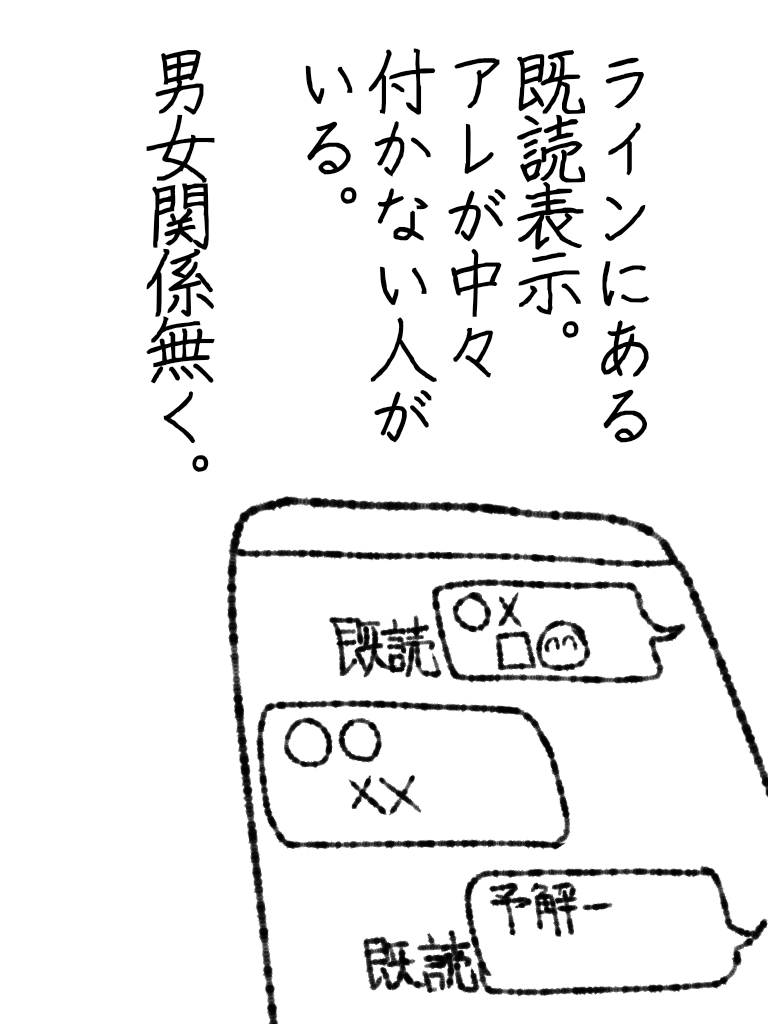 ラインにある
既読表示。
アレが中々
付かない人が
いる。
男女関係無く。
○×
□
既読
○○
××
予解ー
既読